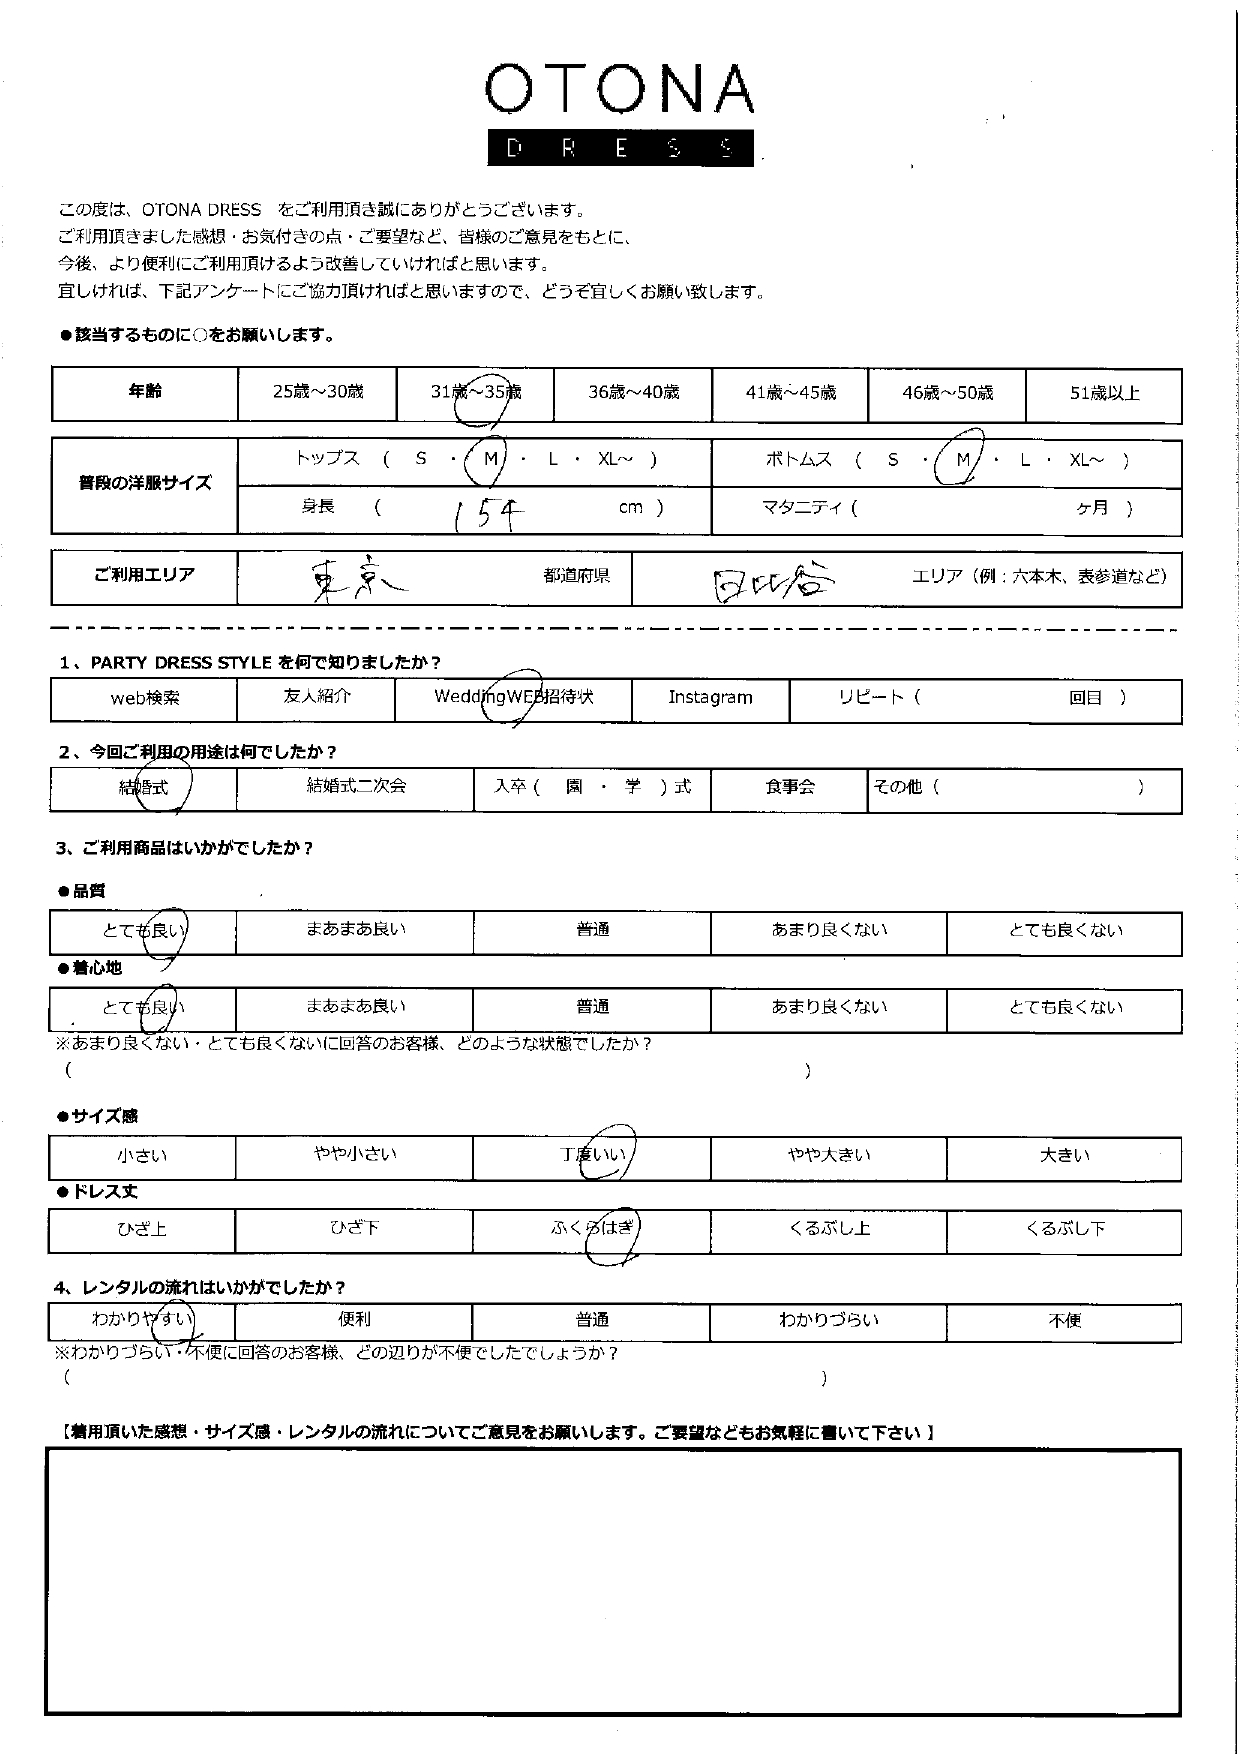 OTONA
DRESS
この度は、OTONA DRESS をご利用頂き誠にありがとうございます。
ご利用頂きました感想・お気付きの点・ご要望など、皆様のご意見をもとに、
今後、より便利にご利用頂けるよう改善していければと思います。
宜しければ、下記アンケートにご協力頂ければと思いますので、どうぞ宜しくお願い致します。
●該当するものに○をお願いします。
年齢 25歳～30歳 31歳～35歳 36歳～40歳 41歳～45歳 46歳～50歳 51歳以上
普段の洋服サイズ
トップス ( S ・ M ・ L ・ XL～ ) ボトムス ( S ・ M ・ L ・ XL～ )
身長 ( 154 cm ) マタニティ ( ヶ月 )
ご利用エリア 東京 都道府県 日比谷 エリア（例：六本木、表参道など）
1、PARTY DRESS STYLE を何で知りましたか？
web検索 友人紹介 WeddingWEB招待状 Instagram リピート ( 回目 )
2、今回ご利用の用途は何でしたか？
結婚式 結婚式二次会 入卒 ( 園 ・ 学 ) 式 食事会 その他 ( )
3、ご利用商品はいかがでしたか？
●品質
とても良い まあまあ良い 普通 あまり良くない とても良くない
●着心地
とても良い まあまあ良い 普通 あまり良くない とても良くない
※あまり良くない・とても良くないに回答のお客様、どのような状態でしたか？
( )
●サイズ感
小さい やや小さい 丁度いい やや大きい 大きい
●ドレス丈
ひざ上 ひざ下 ふくらはぎ くるぶし上 くるぶし下
4、レンタルの流れはいかがでしたか？
わかりやすい 便利 普通 わかりづらい 不便
※わかりづらい・不便に回答のお客様、どの辺りが不便でしたでしょうか？
( )
【着用頂いた感想・サイズ感・レンタルの流れについてご意見をお願いします。ご要望などもお気軽に書いて下さい 】